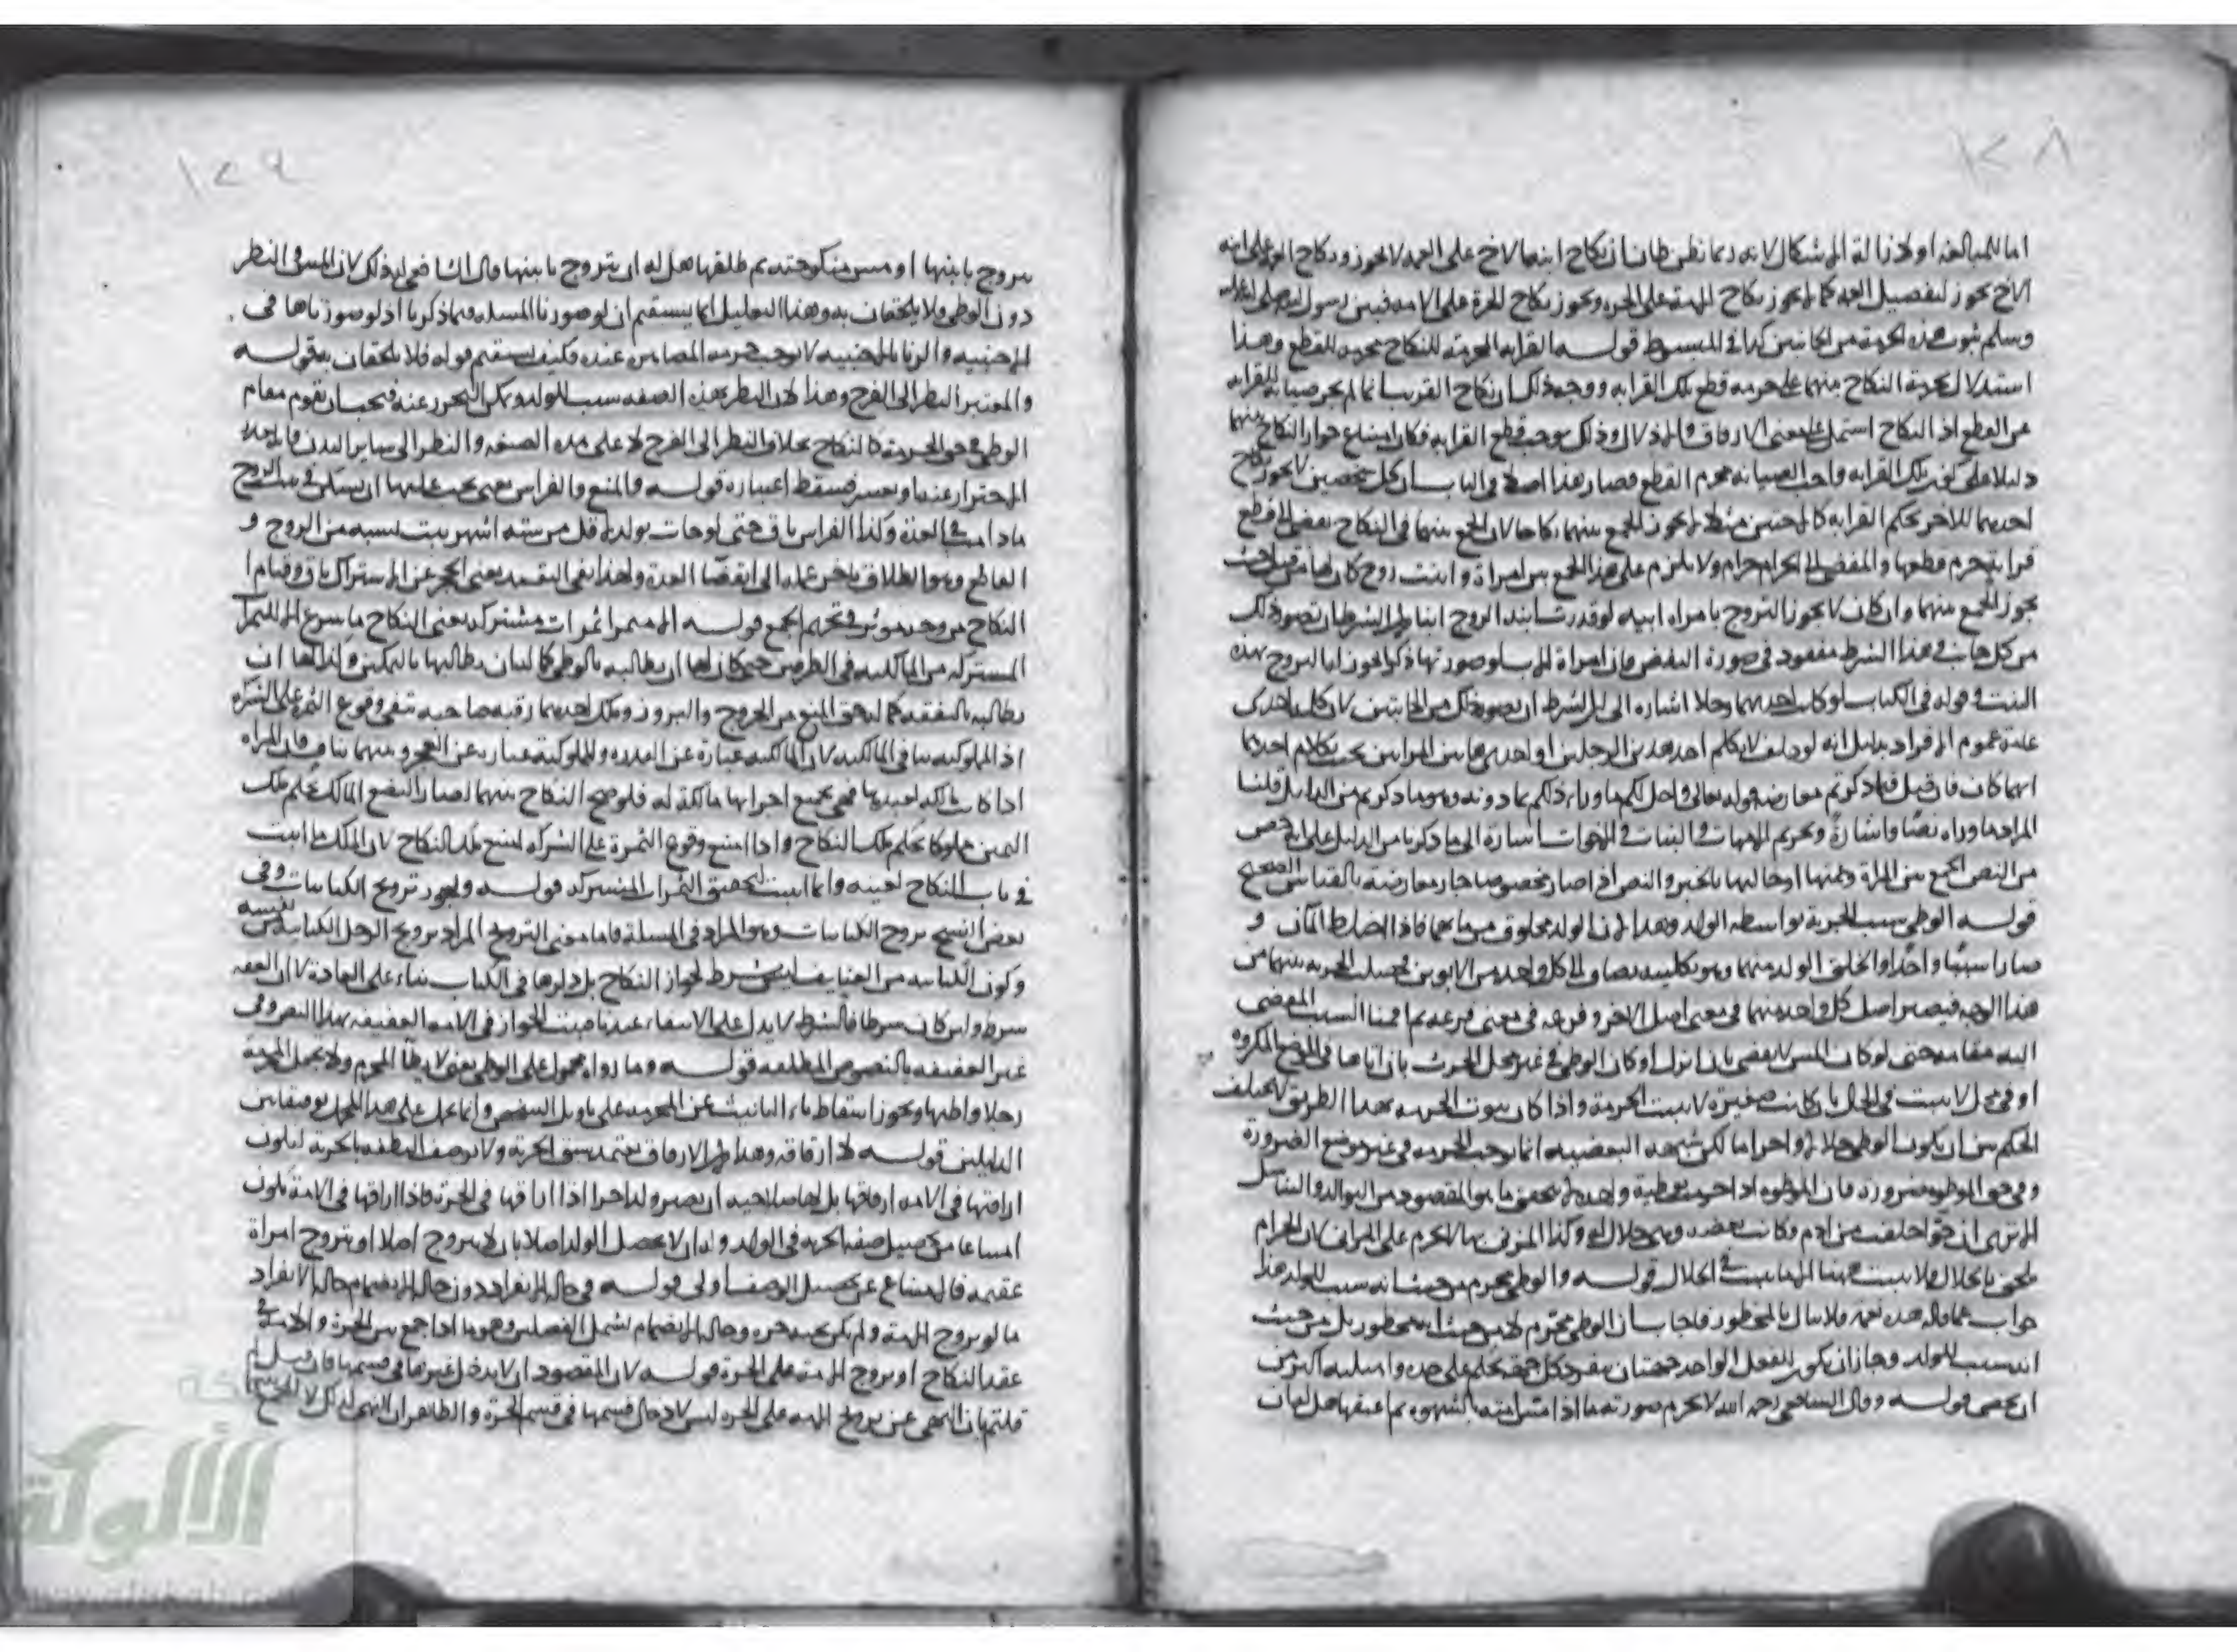 ١٢٨
اما للمبالغة او لازالة الاشكال لانه ربما يظن ظان ان نكاح ابنة الاخ على العمة لا يجوز ونكاح العمة على ابنة
الاخ يجوز لتفضيل العمة كما لا يجوز نكاح الامة على الحرة ويجوز نكاح الحرة على الامة فبين رسول الله صلى الله عليه
وسلم ثبوت هذه الحرمة من الجانبين كذا في المبسوط قوله القرابة المحرمة للنكاح محرمة للقطع وهذا
استدلال بحرمة النكاح بينهما على حرمة قطع تلك القرابة ووجه ذلك ان نكاح القريب انما لم يجز صيانة للقرابة
عن القطع اذ النكاح اشتمل على معنى الارقاق والاذلال وذلك يوجب قطع القرابة فكان امتناع جواز النكاح بينهما
دليلا على كون تلك القرابة واجب الصيانة محرم القطع فصار هذا اصلا في الباب ان كل شخصين لا يجوز نكاح
احديهما للاخر بحكم القرابة كالاختين مثلا لا يجوز الجمع بينهما نكاحا لان الجمع بينهما في النكاح يفضي الى قطع
قرابة يحرم قطعها والمفضي الى الحرام حرام ولا يلزم على هذا الجمع بين امراة وابنت زوج كان لها من قبل حيث
يجوز الجمع بينهما وان كان لا يجوز التزوج بامراه ابيه لو قدرت ابنة الزوج ابنا لان الشرط ان يتصور ذلك
من كل جانب وهذا الشرط مفقود في صورة النقض فان امراة الاب لو صورتها ذكرا يجوز لها التزوج بهذه
البنت وقوله في الكتاب لو كانت احديهما رجلا اشارة الى ان الشرط ان يتصور ذلك من الجانبين لان كلمة احدى
عامة عموم الافراد بدليل انه لو حلف لا يكلم احد هذين الرجلين او احدى هاتين المراتين يحنث بكلام احدهما
ايهما كان فان قيل فيما ذكرتم معارضة قوله تعالى واحل لكم ما وراء ذلكم بما دونه وهو ما ذكرتم من الدليل قلنا
المراد ما وراه نصا واشارة وتحريم الامهات والبنات والاخوات اشارة الى ما ذكرنا من الدليل على انه خص
من النص الجمع بين المراة وعمتها او خالتها بالخبر والنص اذا صار مخصوصا جاز معارضته بالقياس الصحيح
قوله الوطي سبب الجزئية بواسطة الولد وهذا لان الولد مخلوق من مائهما فاذا اختلط الماآن و
صارا شيئا واحدا وانخلق الولد منهما وهو بكليته يضاف الى كل واحد من الابوين فحصلت الجزئية بينهما من
هذا الوجه فيصير اصل كل واحد منهما في معنى اصل الاخر وفرعه في معنى فرعه ثم اقمنا السبب المفضي
اليه مقامه حتى لو كان المس لا يفضي بان انزل او كان الوطي في غير محل الحرث بان اتاها في الموضع المكروه
او في محل لا ينبت في الحال بان كانت صغيرة لا تثبت الحرمة واذا كان ثبوت الحرمة بهذا الطريق لا يختلف
الحكم بين ان يكون الوطي حلالا او حراما لكن شبهة البعضية انما توجب الحرمة في غير موضع الضرورة
وفي حق الموطوة ضرورة فان الموطوة اذا حرمت بوطية واحدة لم يتحقق ما هو المقصود من التوالد والتناسل
الا ترى ان حوا خلقت من ادم وكانت بعضه وهي حلال له وكذا المزني بها لا تحرم على الزاني لان الحرام
ملحق بالحلال فلا يثبت ههنا الا ما يثبت في الحلال قوله والوطي محرم من حيث انه سبب الولد هذا
جواب عما قاله هذه نعمة فلا تنال بالمحظور فاجاب ان الوطي محرم لا من حيث انه محظور بل من حيث
انه سبب للولد وجاز ان يكون للفعل الواحد جهتان ينفرد كل جهة بحكم على حدة وامثلته اكثر من
ان تحصى قوله وقال الشافعي رحمه الله لا تحرم صورته ما اذا مس امته بشهوة ثم اعتقها هل له ان
١٢٩
يتزوج بابنتها او مس منكوحته ثم طلقها هل له ان يتزوج بابنتها قال الشافعي له ذلك لان المس والنظر
دون الوطي ولا يلحقان به وهذا التعليل انما يستقيم ان لو صورنا المسلة فيما ذكرنا اذ لو صورناها في
الاجنبية والزنا بالاجنبية لا يوجب حرمة المصاهرة عنده فكيف يستقيم قوله فلا يلحقان به قوله
والمعتبر النظر الى الفرج وهذا لان النظر بهذه الصفة سبب للولد ويمكن التحرز عنه فيجب ان يقوم مقام
الوطي في حق الحرمة كالنكاح بخلاف النظر الى الفرج لا على هذه الصفة والنظر الى ساير البدن
الاحتراز عنه او يعسر فسقط اعتباره قوله والمنع والفراش يعني يجب عليها ان تسكن في بيت الزوج
ما دامت في العدة وكذا الفراش باق حتى لو جات بولد لاقل من سنة اشهر يثبت نسبه من الزوج و
القاطع وهو الطلاق تاخر عمله الى انقضا العدة ولهذا بقي القيد يعني الحجر عن الاستراك باق وقيام
النكاح من وجه موثر في تحريم الجمع قوله الا مثمرا ثمرات مشتركة يعني النكاح ما شرع الا للثمرات
المشتركة من المالكية في الطرفين حتى كان لها ان يطالبه بالوطي كما كان يطالبها بالتمكين وكذا لها ان
يطالبه بالنفقة كما له حق المنع من الخروج والبروز وملك احديهما رقبة صاحبه ينفي وقوع الثمرة على الشركة
اذ المملوكية تنافي المالكية لان المالكية عبارة عن القدرة والمملوكية عبارة عن العجز وبينهما تناف فان المراة
اذا كانت مالكة لعبدها فهي بجميع اجزائها مالكة له فلو صح النكاح بينهما لصار البضع المالك بحكم ملك
اليمين مملوكا بحكم ملك النكاح واذا امتنع وقوع الثمرة على الشركة امتنع ملك النكاح لان الملك ما اثبت
في باب النكاح لعينه وانما اثبت لتحقيق الثمرات المشتركة قوله ويجوز تزويج الكتابيات وفي
بعض النسخ تزوج الكتابيات وهو المراد في المسلة فاما معنى التزويج المراد تزويج الرجل الكتابية من نفسه
وكون الكتابية من العفايف ليس بشرط لجواز النكاح بل ذكرها في الكتاب بناء على العادة لا ان العفة
شرط وان كان شرطا فالشرط لا يدل على الانتفاء عندنا فيثبت الجواز في الامة العفيفة بهذا النص وفي
غير العفيفة بالنصوص المطلقة قوله وما رواه محمول على الوطي يعني لا يطأ المحرم ولا تمكن المحرمة
رجلا واطئها ويجوز اسقاط تاء التانيث عن المحرمة على تاويل الشخص وانما حمل على هذا المحمل توفيقا بين
الدليلين قوله لا ارقاقه وهذا لان الارقاق يعتمد سبق الحرية ولا توصف النطفة بالحرية ليكون
اراقتها في الامة ارقاقها بل لها صلاحية ان تصير ولدا حرا اذا اراقها في الحرة فاذا اراقها في الامة تكون
امتناعا من تحصيل صفة الحرية في الولد وله ان لا يحصل الولد اصلا بان لا يتزوج اصلا او يتزوج امراة
عقيمة فالامتناع عن تحصيل الوصف اولى قوله وفي حالة الانفراد دون حالة الانضمام حالة الانفراد
ما لو تزوج الامة ولم يكن تحته حرة وحالة الانضمام تشمل الفصلين وهو ما اذا جمع بين الحرة والامة في
عقد النكاح او تزوج الامة على الحرة قوله لان المقصود ان لا يدخل غيرها في قسمها فان قيل لم
قلتم بان النهي عن تزوج الامة على الحرة ليس لادخال قسمها في قسم الحرة والظاهر ان النهي لذلك لا للجمع
الألوكة